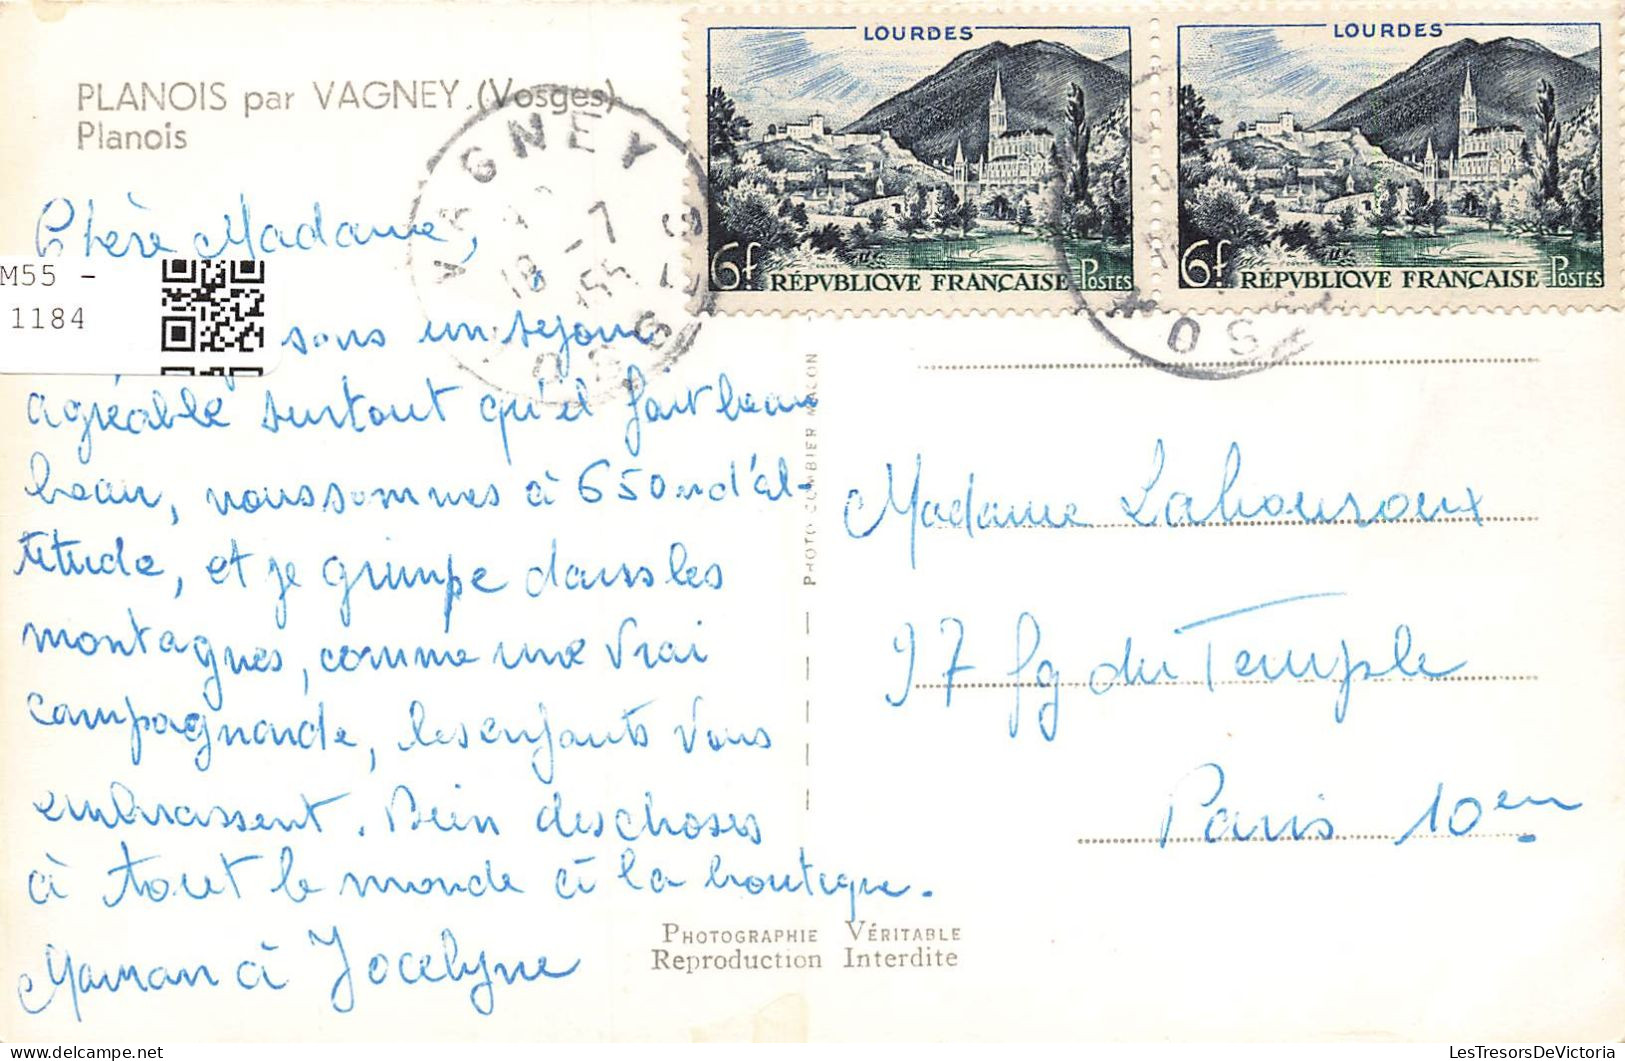 PLANOIS par VAGNEY (Vosges)
Planois
VAGNEY
18 -7
VOSGES
LOURDES
6f RÉPVBLIQVE FRANÇAISE POSTES
LOURDES
6f RÉPVBLIQVE FRANÇAISE POSTES
M55 -
1184
Chère Madame,
sons un séjour
agréable surtout qu'il fait beau
beau, nous sommes à 650 m d'al-
titude, et je grimpe dans les
montagnes, comme une vrai
campagnarde, les enfants vous
embrassent. Bien des choses
à tout le monde à la boutique.
Maman à Jocelyne
PHOTO COMBIER MACON
Madame Lahouroux
97 fg du Temple
Paris 10em
PHOTOGRAPHIE VÉRITABLE
Reproduction Interdite
LesTresorsDeVictoria